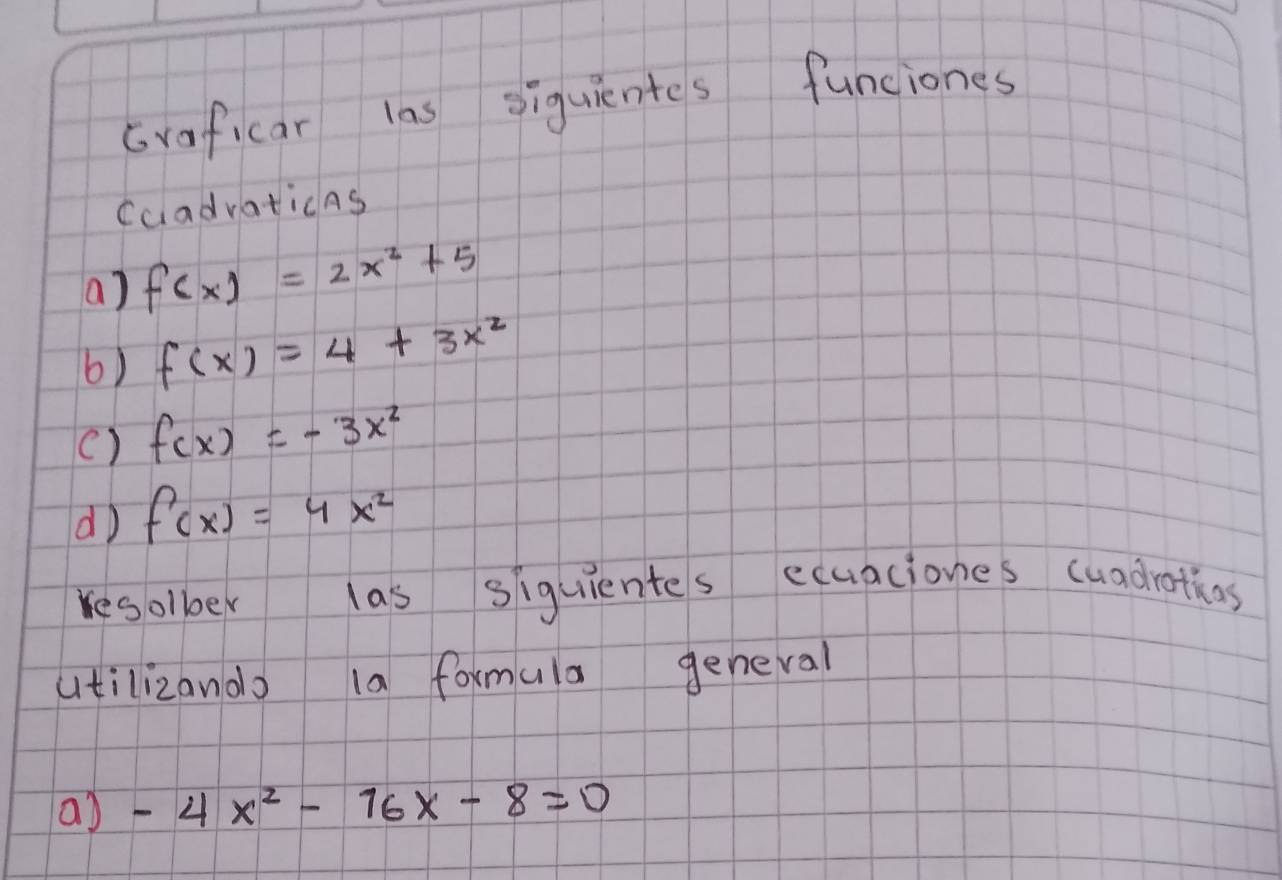 Graficar las siguientes funciones
cuadraticas
a) f(x) = 2x² + 5
b) f(x) = 4 + 3x²
c) f(x) = - 3x²
d) f(x) = 4x²
resolber las siguientes ecuaciones cuadraticas
utilizando la formula general
a) - 4x² - 16x - 8 = 0